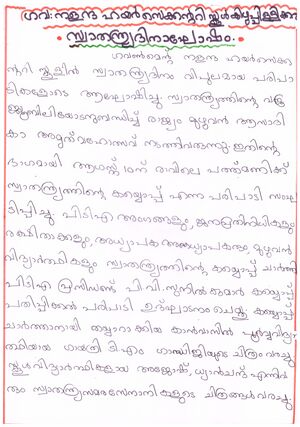 ഗവ: നളന്ദ ഹയർസെക്കന്ററി സ്കൂൾ കിഴുപ്പിള്ളിക്കര
സ്വാതന്ത്ര്യദിനാഘോഷം.
ഗവൺമെന്റ് നളന്ദ ഹയർസെക്ക
ന്ററി സ്കൂളിൽ സ്വാതന്ത്ര്യദിനം വിപുലമായ പരിപാ
ടികളോടെ ആഘോഷിച്ചു. സ്വാതന്ത്ര്യത്തിന്റെ വജ്ര
ജൂബിലിയോടനുബന്ധിച്ച് രാജ്യം മുഴുവൻ ആസാദി
കാ അമൃത് മഹോത്സവ് നടന്നുവരുന്നു. ഇതിന്റെ
ഭാഗമായി ആഗസ്റ്റ് 10ന് രാവിലെ പത്ത്മണിക്ക്
സ്വാതന്ത്ര്യത്തിന്റെ കയ്യൊപ്പ് എന്ന പരിപാടി സംഘ
ടിപ്പിച്ചു. പിടിഎ അംഗങ്ങളും, ജനപ്രതിനിധികളും
രക്ഷിതാക്കളും, അധ്യാപക അനധ്യാപകരും, മുഴുവൻ
വിദ്യാർത്ഥികളും സ്വാതന്ത്ര്യത്തിന്റെ കയ്യൊപ്പ് ചാർത്തി
പിടിഎ പ്രസിഡണ്ട് പി.വി.സുനിൽകുമാർ കയ്യൊപ്പ്
പതിപ്പിക്കൽ പരിപാടി ഉദ്ഘാടനം ചെയ്തു. കയ്യൊപ്പ്
ചാർത്താനായി തയ്യാറാക്കിയ കാൻവാസിൽ പൂർവ്വവിദ്യാ
ർത്ഥിയായ ഗായത്രി ടി.എം ഗാന്ധിജിയുടെ ചിത്രം വരച്ചു
സ്കൂൾ വിദ്യാർത്ഥികളായ അജോഷ്, ധ്യാൻചന്ദ് എന്നിവ
രും സ്വാതന്ത്ര്യസമരസേനാനികളുടെ ചിത്രങ്ങൾ വരച്ചു.